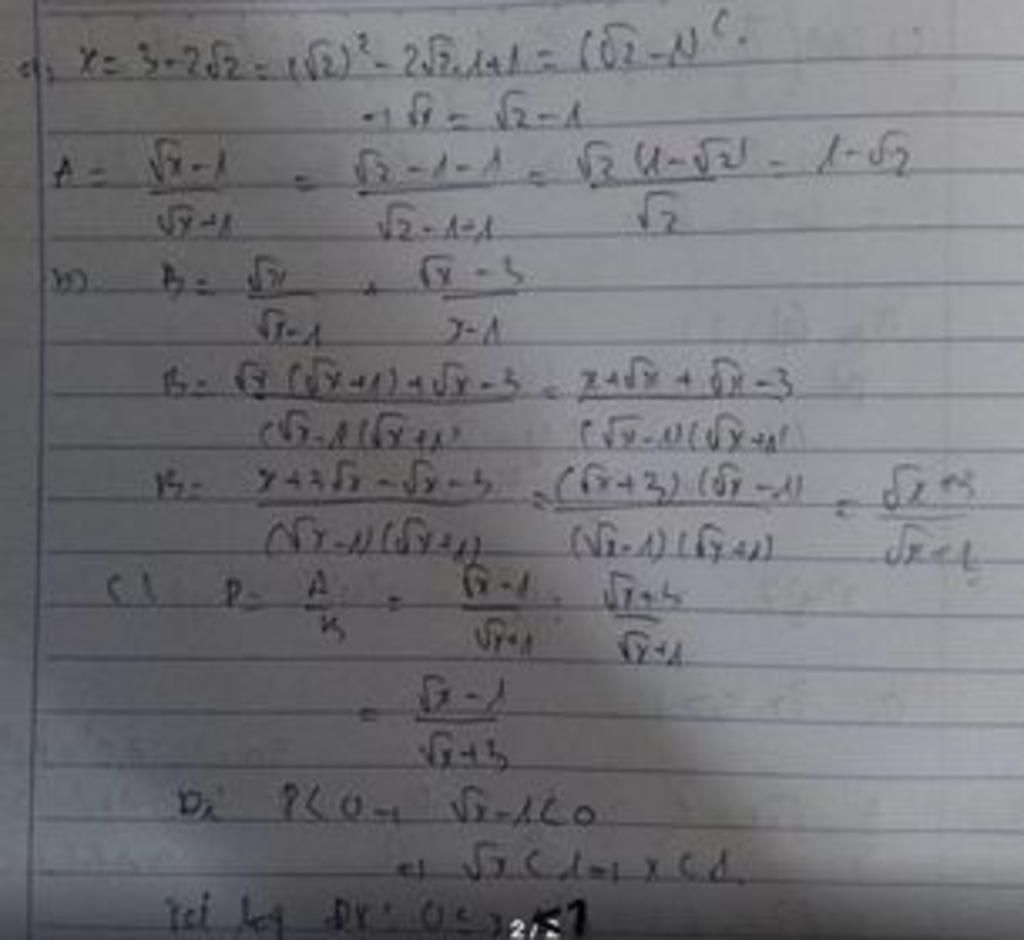 a, x = 3 - 2√2 = (√2)² - 2√2.1+1 = (√2 - 1)².
=> √x = √2 - 1
A = (√x - 1)/(√x+1) = (√2 - 1 - 1)/(√2 - 1+1) = √2 (1 - √2)/√2 = 1 - √2
b) B = √x/(√x - 1) + (√x - 3)/(x - 1)
B = (√x (√x+1) + √x - 3)/((√x - 1)(√x+1) = (x+√x + √x - 3)/((√x - 1)(√x+1)
B = (x+3√x - √x - 3)/((√x - 1)(√x+1)) = ((√x+3) (√x - 1))/((√x - 1)(√x+1)) = (√x+3)/(√x+1)
c) P = A/B = (√x - 1)/(√x+1) : (√x+3)/(√x+1)
= (√x - 1)/(√x+3)
P < 0 => √x - 1 < 0
=> √x < 1 => x < 1.
0 ≤ x < 1
2/2